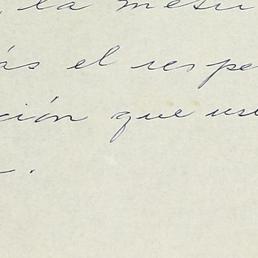 la mesu
ás el respe
ción que use